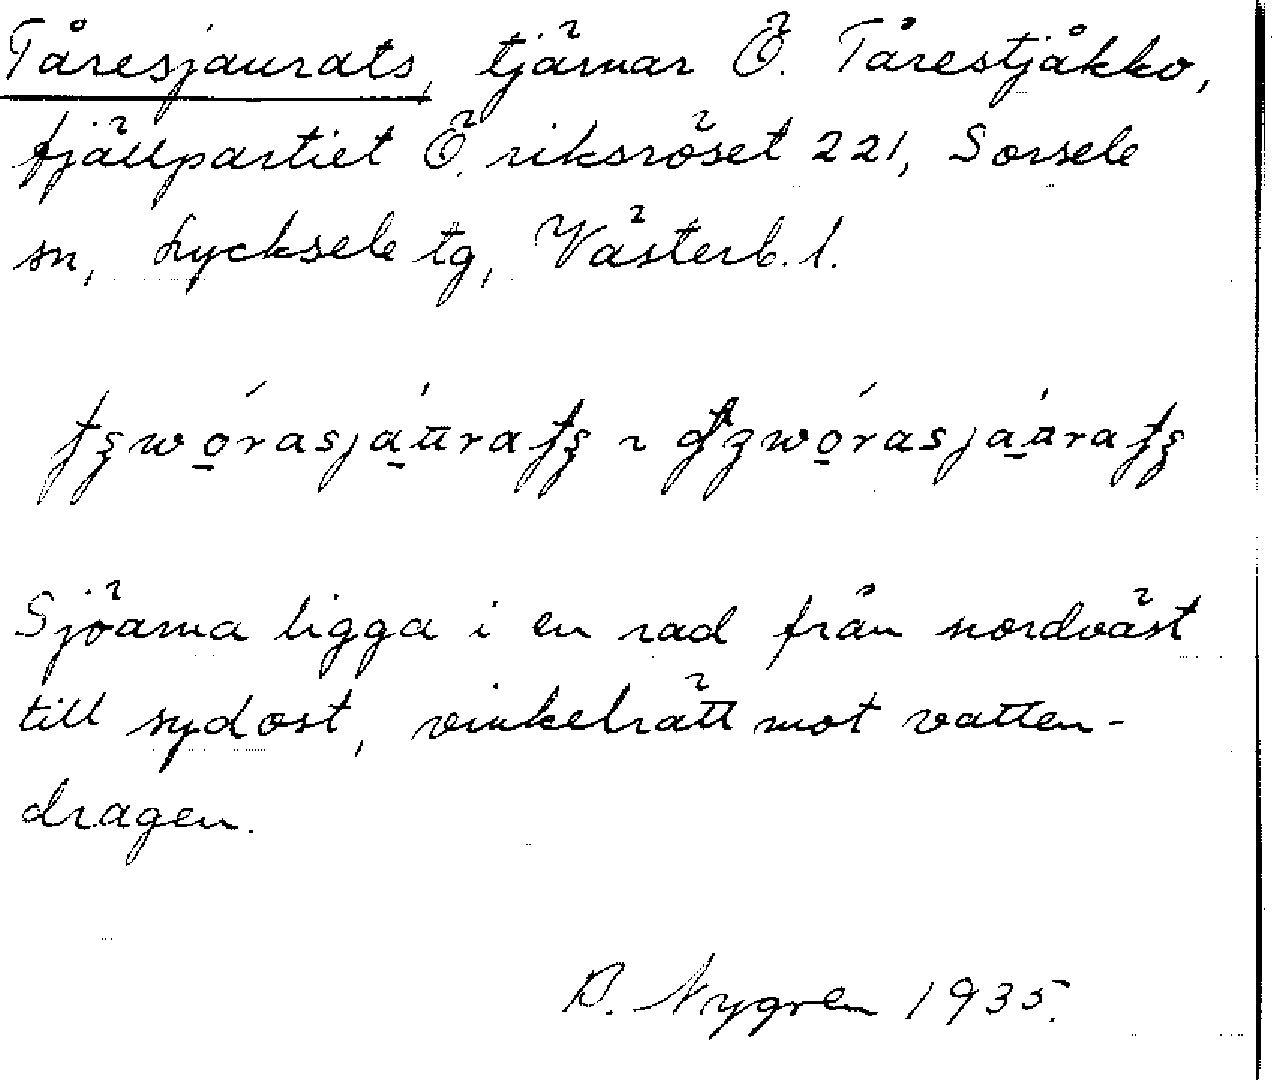 Tåresjaurats, tjärnar Ö. Tårestjåkko,
fjällpartiet Ö. riksröset 221, Sorsele
sn, Lycksele tg, Västerb. l.
Sjöarna ligga i en rad från nordväst
till sydost, vinkelrätt mot vatten-
dragen.
Nygren 1935.